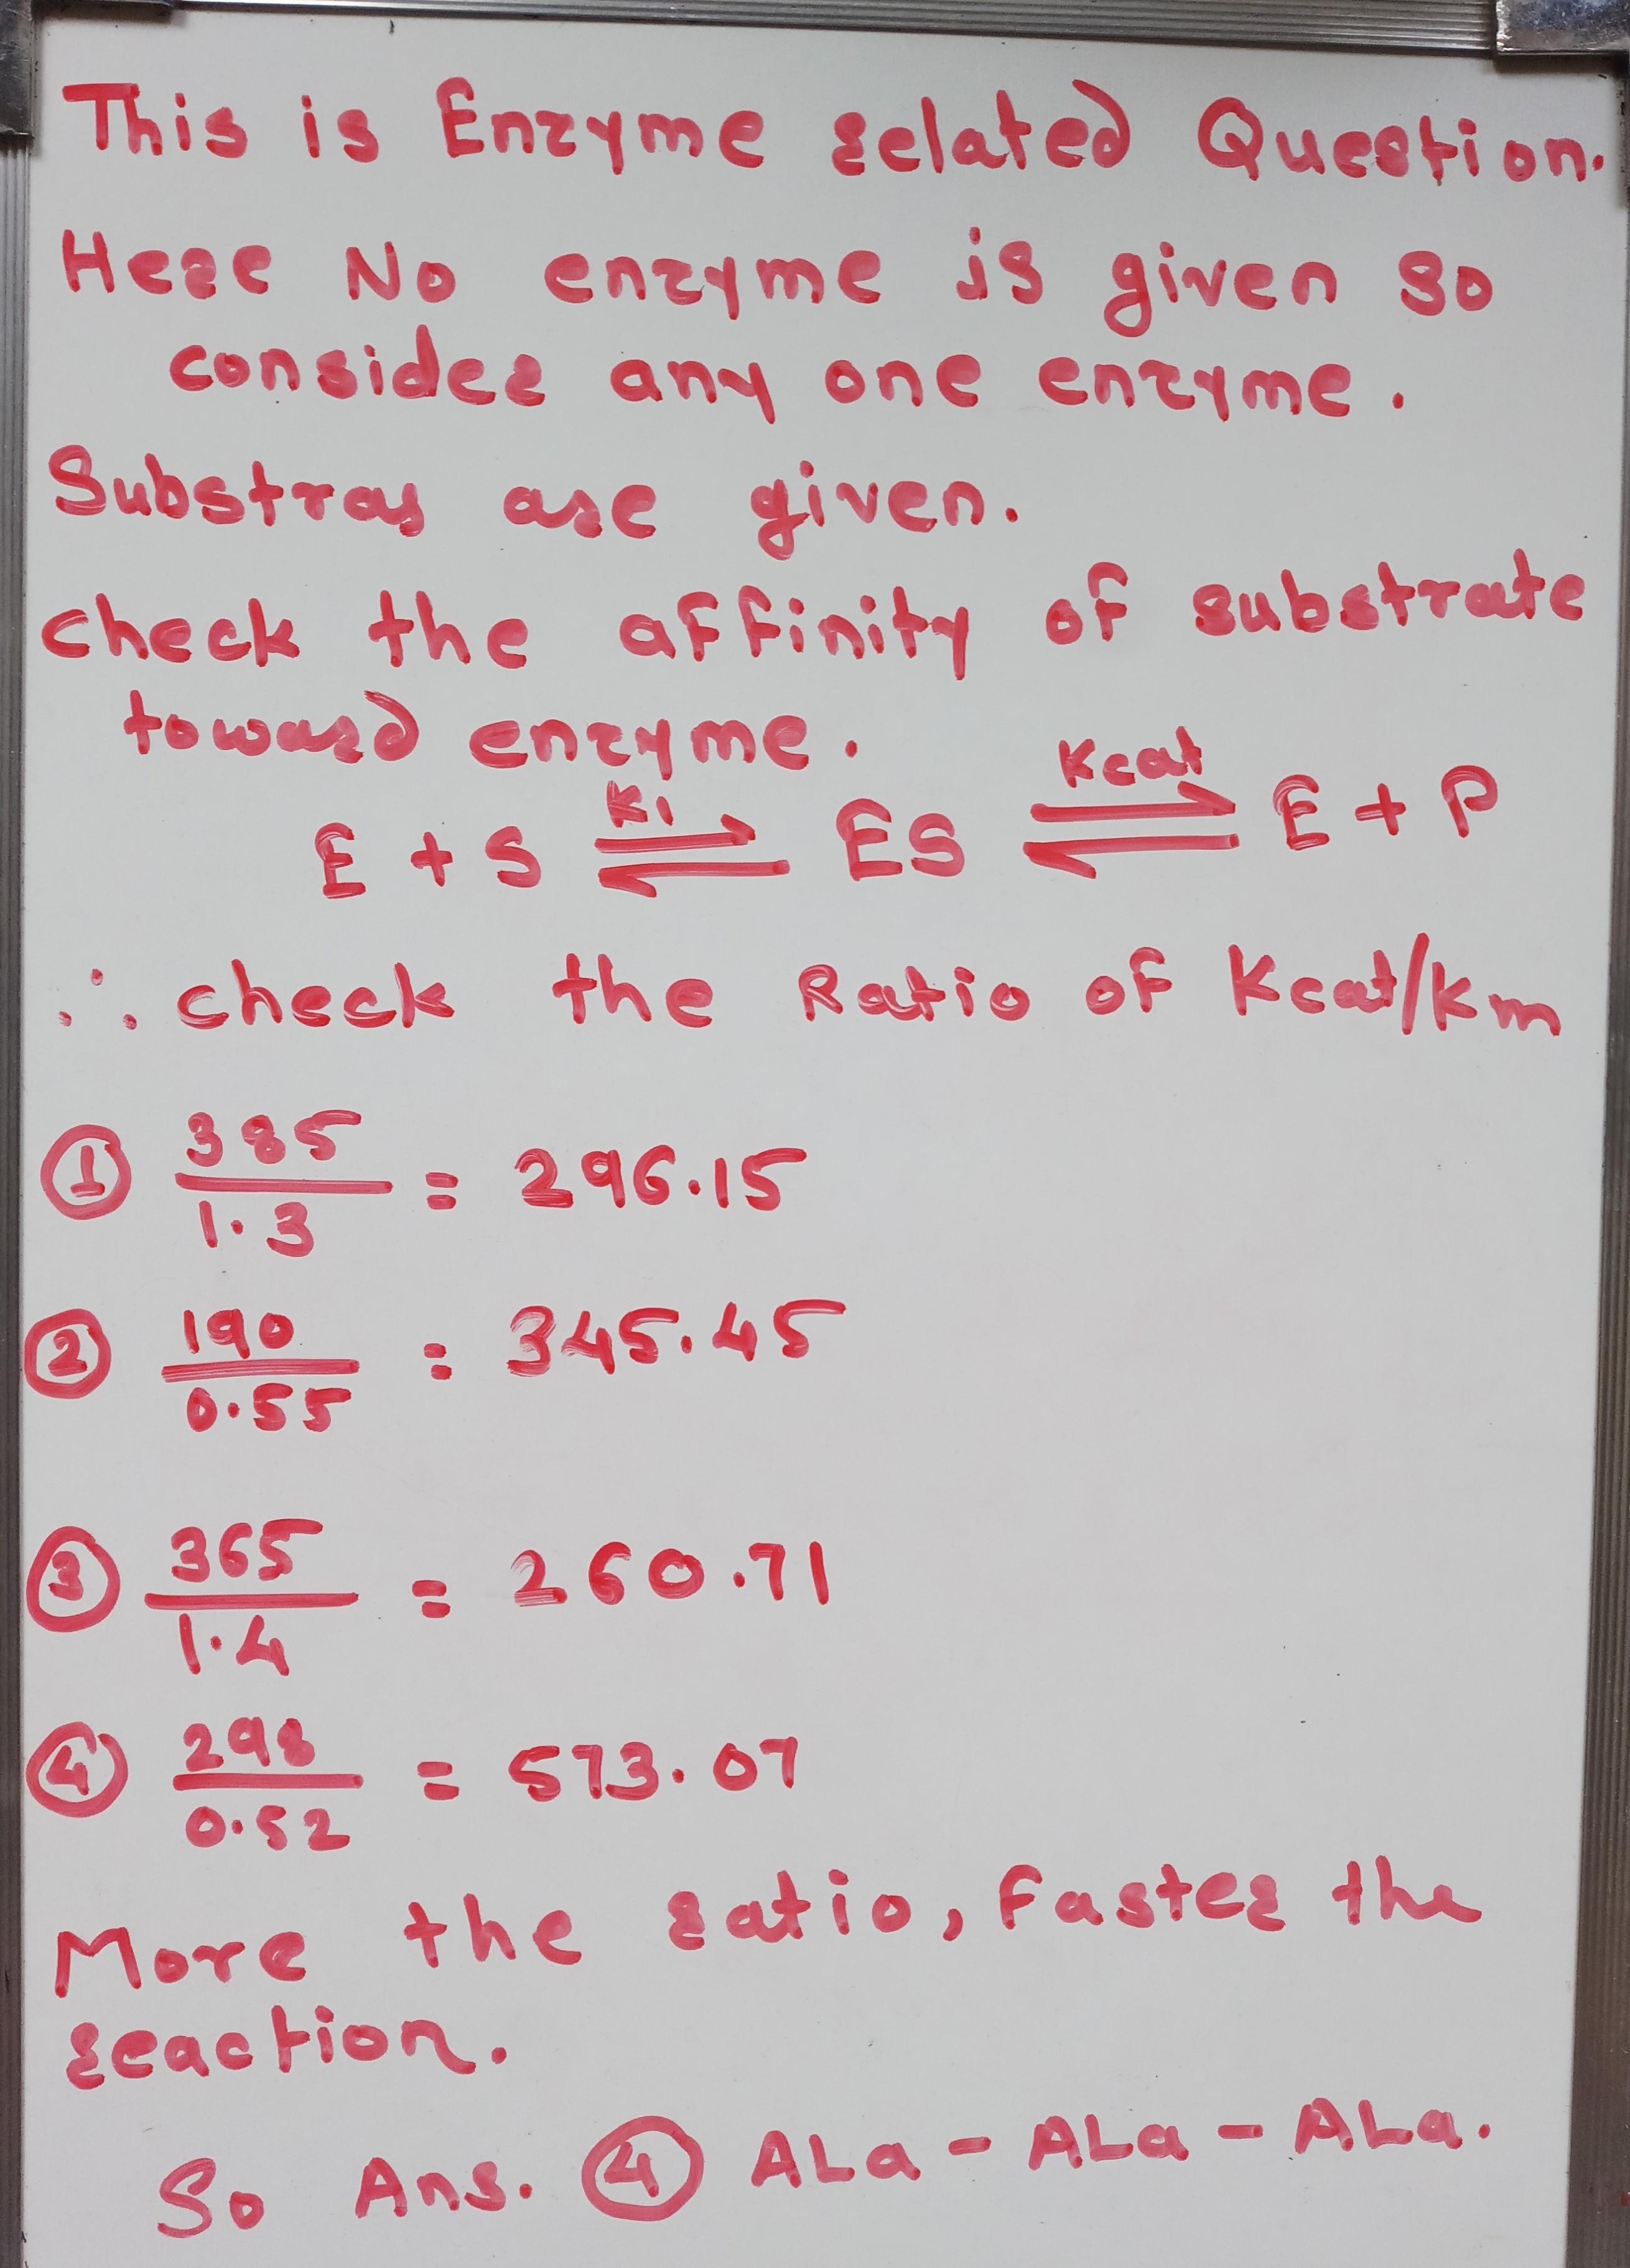 This is Enzyme related Question.
Here No enzyme is given so
consider any one enzyme.
Substras are given.
check the affinity of substrate
toward enzyme.
E + S ⇌ ES ⇌ E + P
K1 Kcat
∴ check the Ratio of Kcat/Km
① 385/1.3 = 296.15
② 190/0.55 = 345.45
③ 365/1.4 = 260.71
④ 298/0.52 = 573.07
More the ratio, Faster the
reaction.
So Ans. ④ ALa - ALa - ALa.